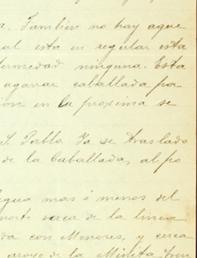 . Tambien no hay ague
al esta en regular esta
fermedad ninguna. Esta
ugarar caballada pa
en la proxima se
S. Pablo Ya se traslado
de la Caballada, al po
egua mas ó menos del
norte cerca de la linea
da con Menores, y cerca
arroyo de la Mielita